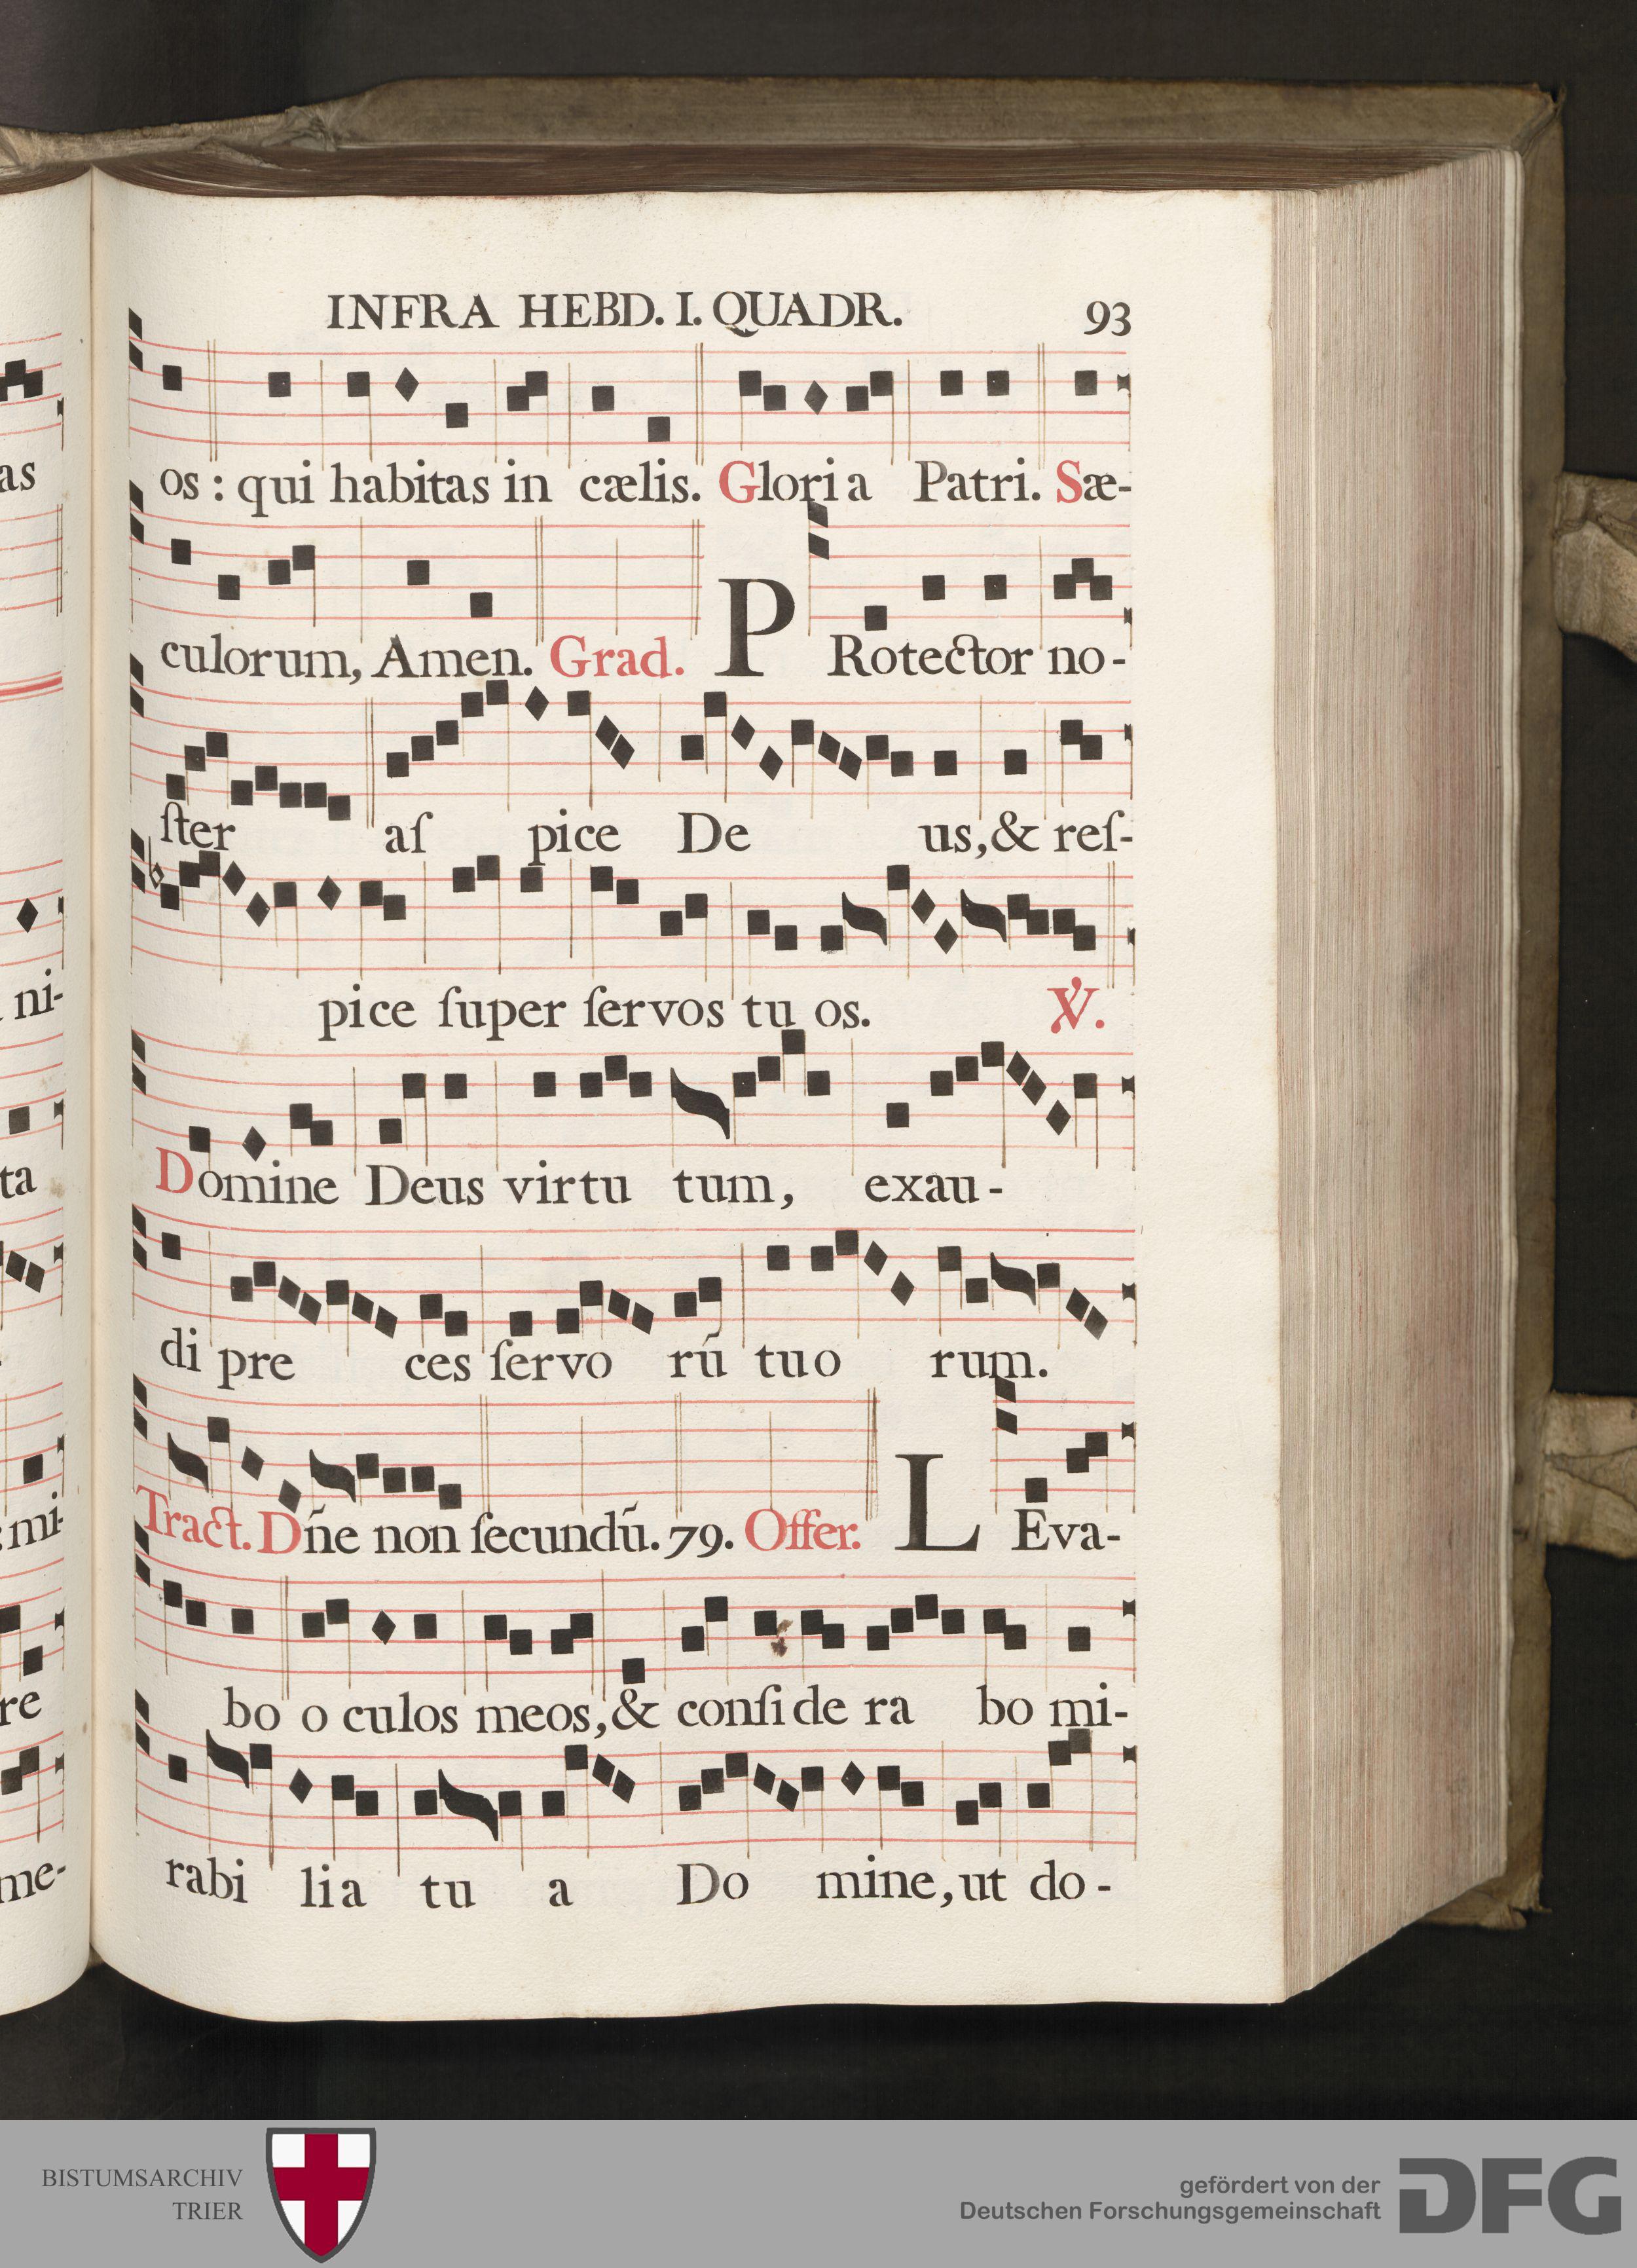 INFRA HEBD. I. QUADR. 93
os : qui habitas in cælis. Gloria Patri. Sæ-
culorum, Amen. Grad. PRotector no-
ſter aſ pice De us, & reſ-
pice ſuper ſervos tu os. ℣.
Domine Deus virtu tum, exau-
di pre ces ſervo rū tuo rum.
Tract. Dñe non ſecundū. 79. Offer. LEva-
bo o culos meos, & conſi de ra bo mi-
rabi lia tu a Do mine, ut do-
as
ni-
ta
mi-
re
me-
BISTUMSARCHIV
TRIER
gefördert von der
Deutschen Forschungsgemeinschaft
DFG